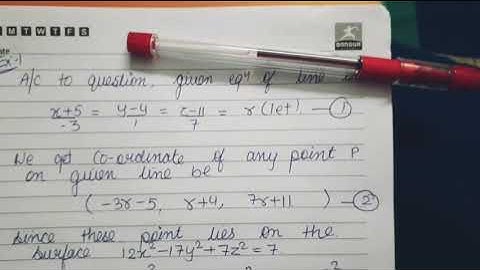 M T W T F S
DONGUA
A/C to question, given eqⁿ of line is
x+5/-3 = y-4/1 = z-11/7 = r (let) —①
We get Co-ordinate of any point P
on given line be
( -3r-5, r+4, 7r+11 ) —②
since these point lies on the
surface 12x²-17y²+7z² = 7